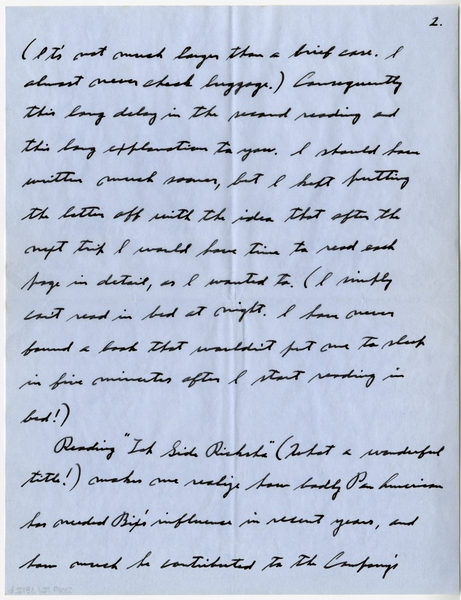 2.
(It's not much larger than a brief case. I
almost never check luggage.) Consequently
this long delay in the second reading and
this long explanation to you. I should have
written much sooner, but I kept putting
the letter off with the idea that after the
next trip I would have time to read each
page in detail, as I wanted to. (I simply
can't read in bed at night. I have never
found a book that wouldn't put me to sleep
in five minutes after I start reading in
bed!)
Reading "Ich Side Ricksha" (What a wonderful
title!) makes me realize how badly Pan American
has needed Bix's influence in recent years, and
how much he contributed to the Company's